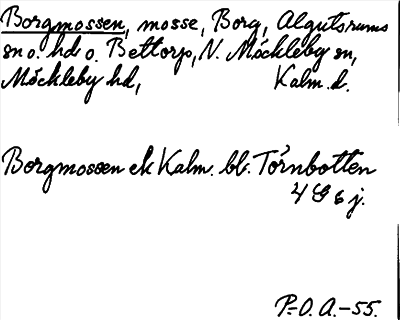 Borgmossen, mosse, Borg, Algutsrums
sn o. hd o. Bettorp, N. Möckleby sn,
Möckleby hd, Kalm. d.
Borgmossen ek Kalm. bl. Törnbotten
4 G s j.
P.-O. A.-55.